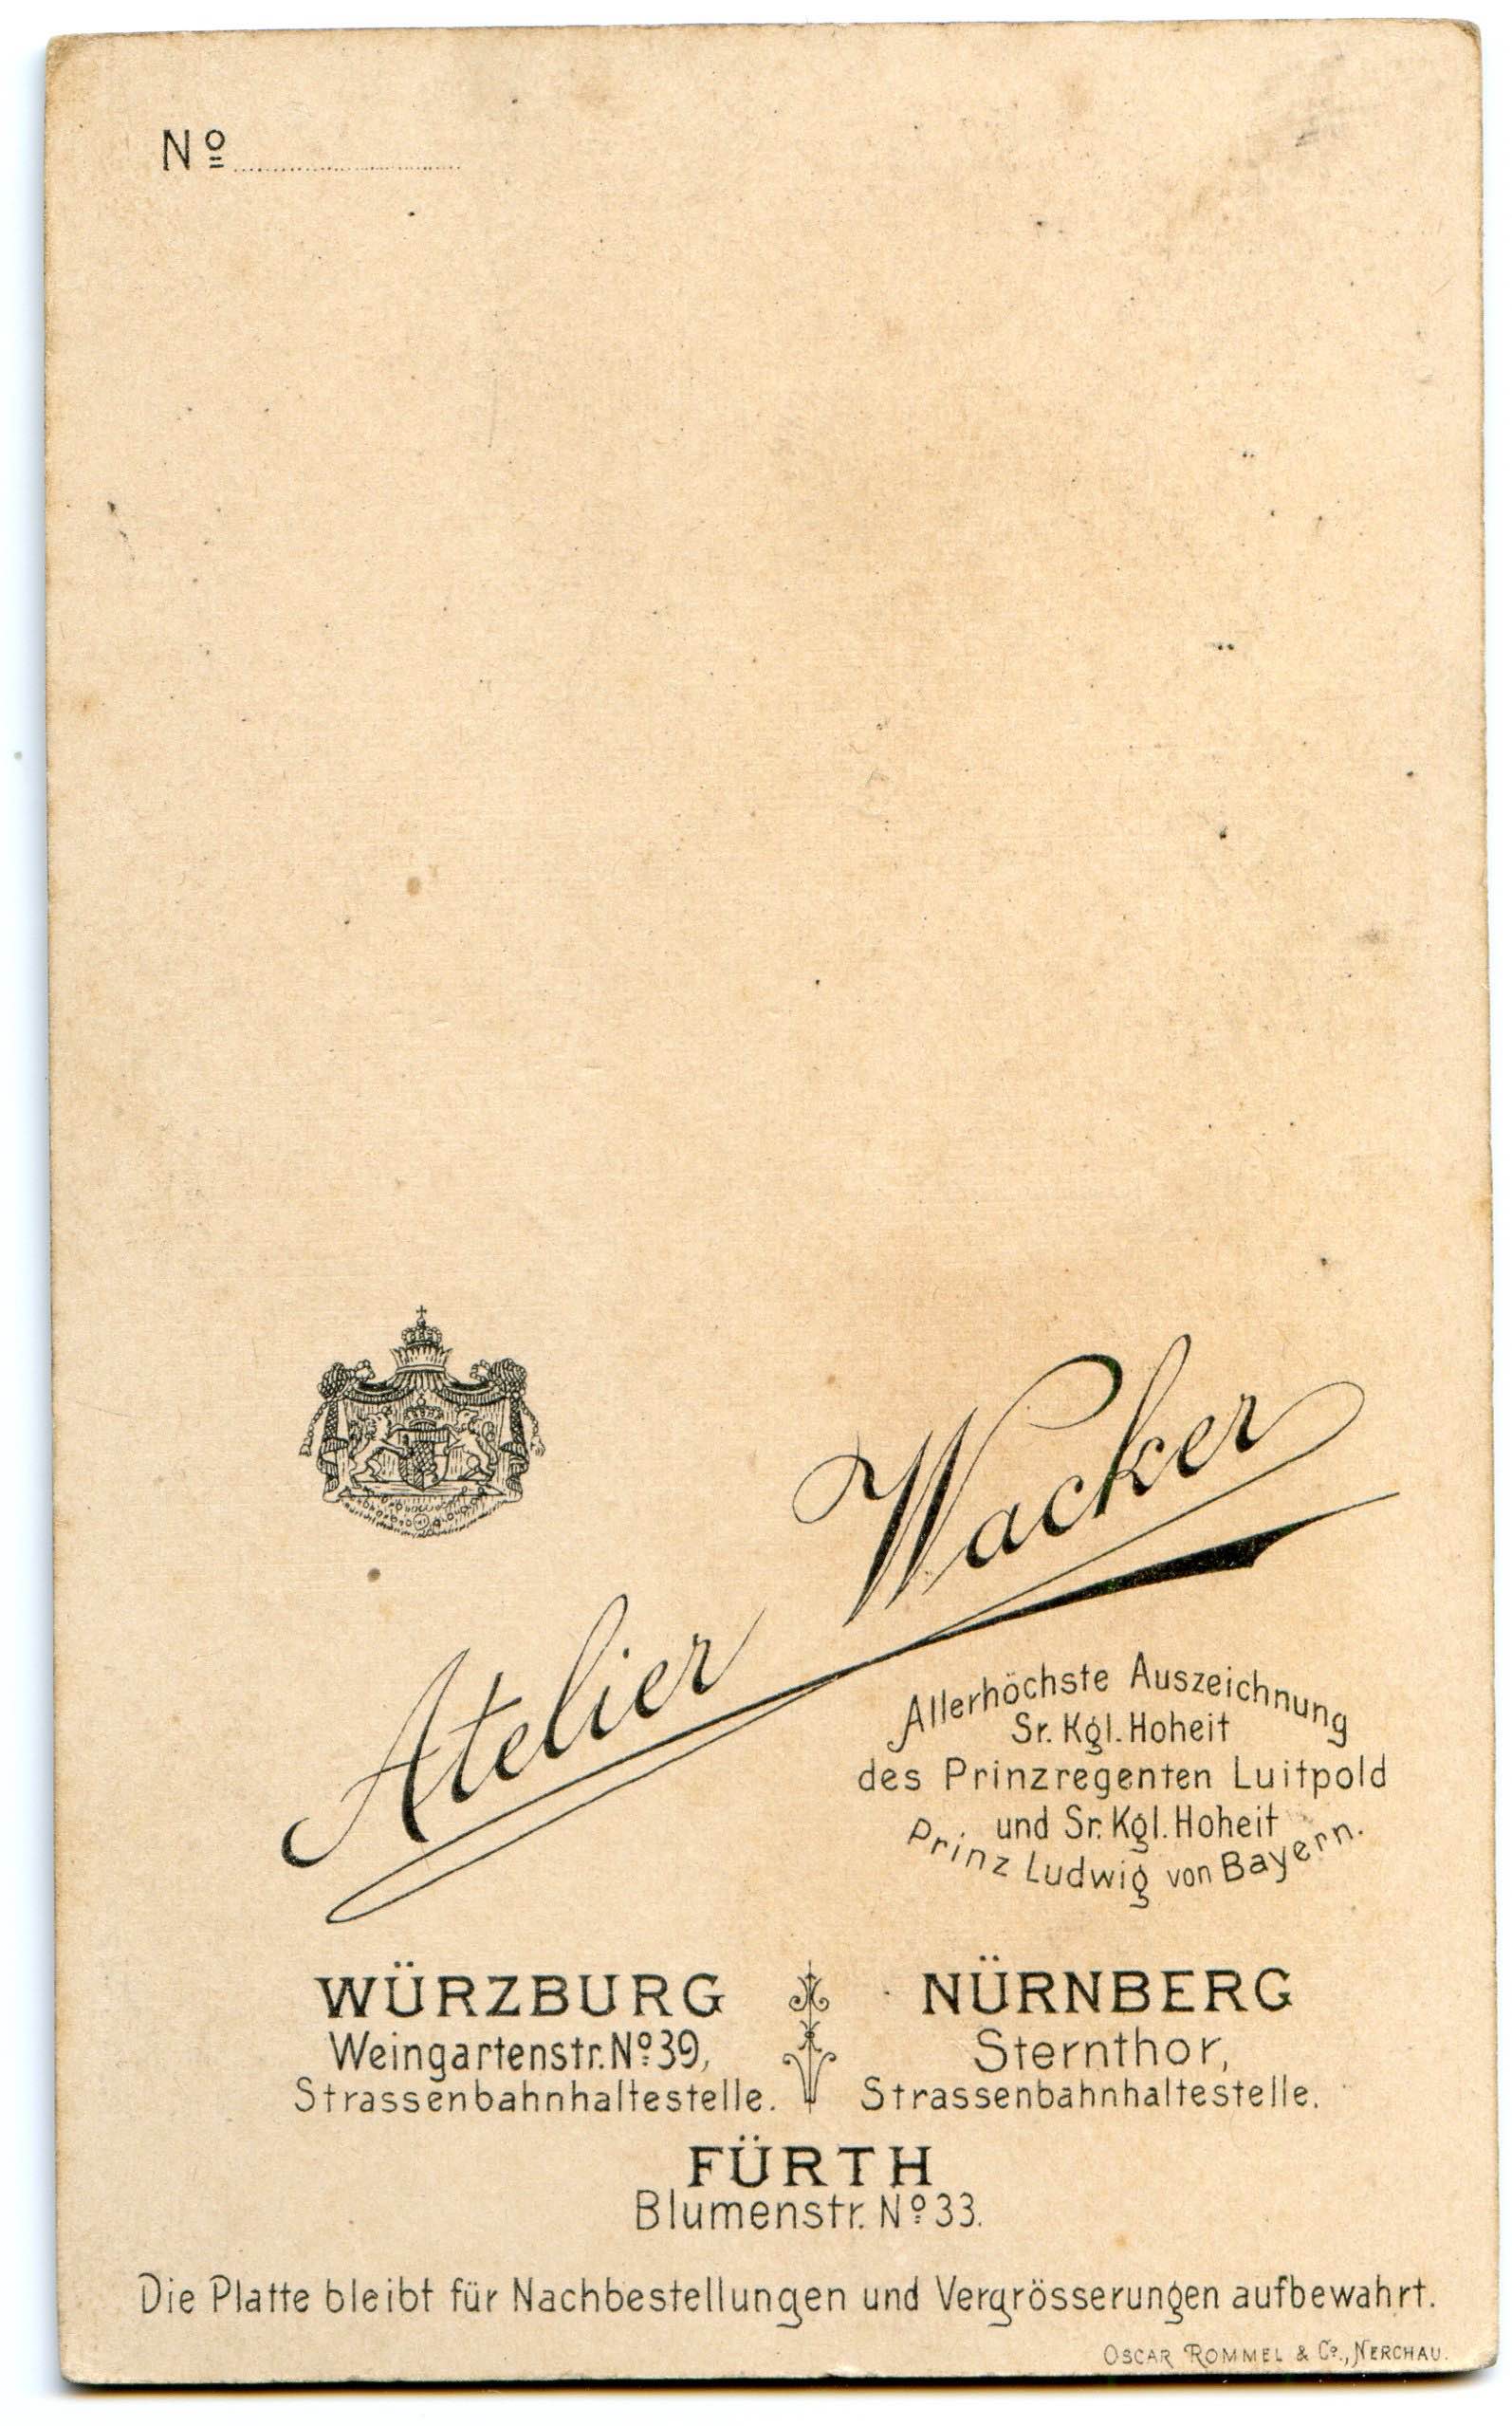 Nº
Atelier Wacker
Allerhöchste Auszeichnung
Sr. Kgl. Hoheit
des Prinzregenten Luitpold
und Sr. Kgl. Hoheit
Prinz Ludwig von Bayern.
WÜRZBURG
Weingartenstr. Nº 39,
Strassenbahnhaltestelle.
NÜRNBERG
Sternthor,
Strassenbahnhaltestelle.
FÜRTH
Blumenstr. Nº 33.
Die Platte bleibt für Nachbestellungen und Vergrösserungen aufbewahrt.
OSCAR ROMMEL & Cº., NERCHAU.